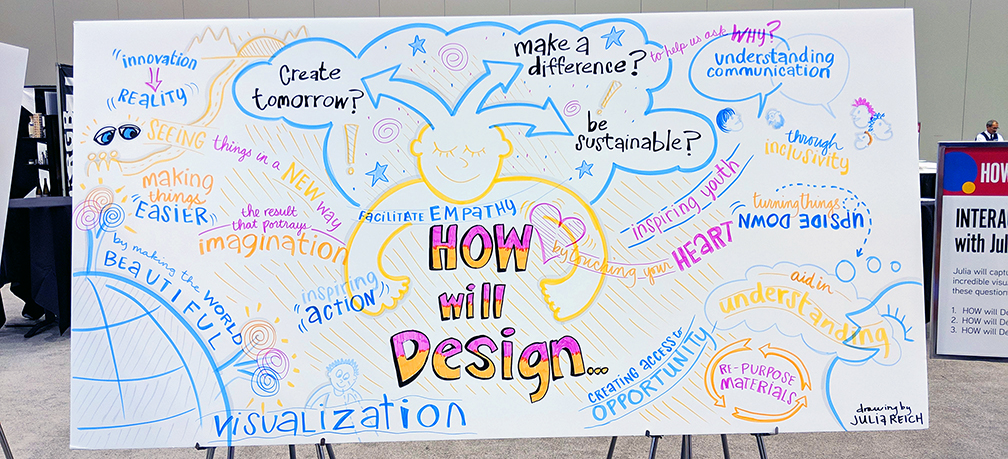 innovation
REALITY
SEEING things in a NEW way
making
things
"EASIER"
the result
that portrays
imagination
by making the WORLD
BEAUTIFUL
visualization
Create
tomorrow?
make a
difference?
be
sustainable?
to help us ask WHY?
understanding
communication
through
inclusivity
FACILITATE EMPATHY
HOW
will
Design...
inspiring
"action"
inspiring youth
by touching your HEART
turning things
UPSIDE DOWN
aid in
understanding
CREATING ACCESS to
OPPORTUNITY
RE-PURPOSE
MATERIALS
drawing by
JULIA REICH
HOW
INTERA
with Jul
Julia will capt
incredible visu
these question
1. HOW will De
2. HOW will De
3. HOW will De